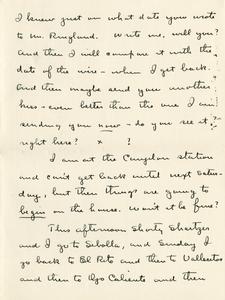 I knew just on what date you wrote
to Mr. Ringland. Write me, will you?
And then I will compare it with the
date of the wire - when I get back.
And then maybe send you another
kiss - even better than the one I am
sending you now - do you see it,
right here? x ?
I am at the Canjelon station
and can't get back until next Satur-
day, but then things are going to
begin on the house. Won't it be fine?
This afternoon Shorty
and I go to Sebolla, and Sunday I
go back to El Rito and then to Vallecitos
and then to Ojo Caliente and then